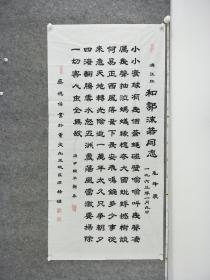 满江红
和郭沫若同志
毛泽东
一九六三年一月九日
小小寰球有幾個蒼蠅碰壁嗡嗡叫幾聲凄
厲幾聲抽泣螞蟻緣槐誇大國蚍蜉撼樹談
何易正西風落葉下長安飛鳴鏑多少事從
來急天地轉光陰迫一萬年太久只爭朝夕
四海翻騰雲水怒五洲震盪風雷激要掃除
一切害人蟲全無敵